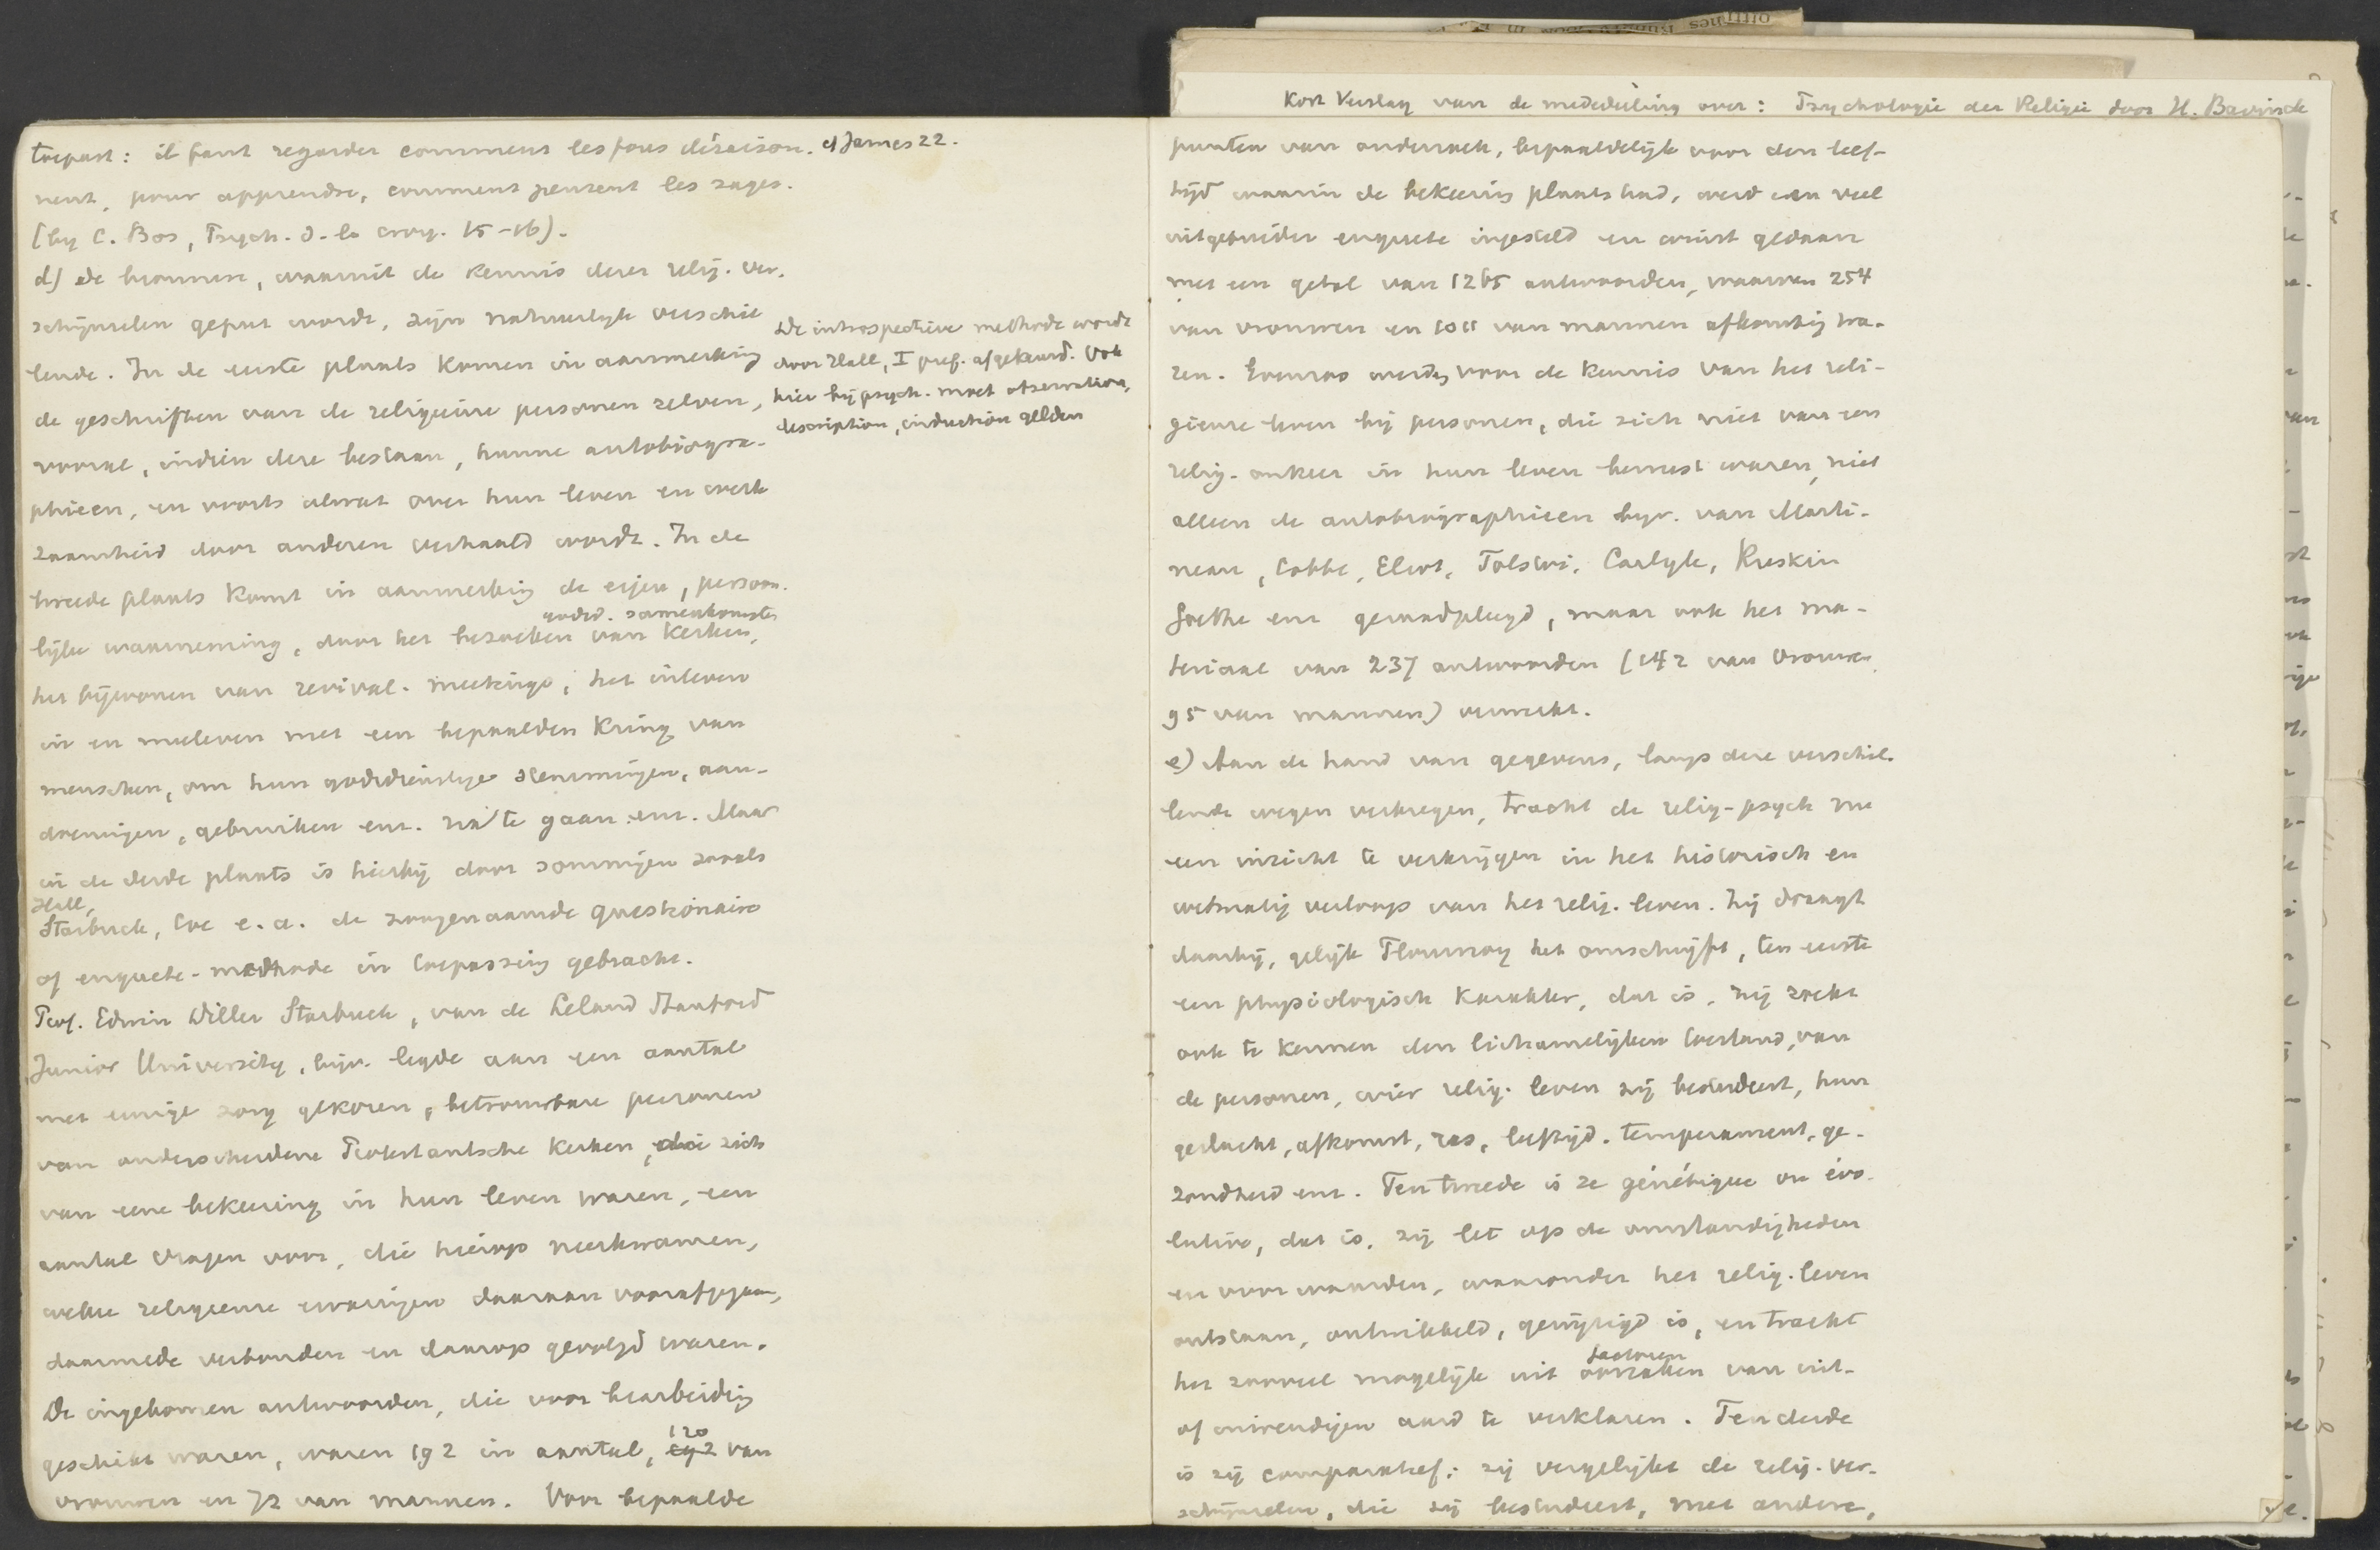 toepast: il faut regarder comment les fous déraison- cf James 22.
nent, pour apprendre, comment pensent les sages.
(by C. Bos, Psych. d. la croy. 15-16).
d) de bronnen, waaruit de kennis dezer relig. ver-
schijnselen geput wordt, zijn natuurlijk verschil
lende. In de eerste plaats komen in aanmerking
de geschriften van de religieuse personen zelven,
vooral, indien deze bestaan, hunne autobiogra-
phieen, en voorts alwat over hun leven en werk
zaamheid door anderen verhaald wordt. In de
tweede plaats komt in aanmerking de eigen, persoon-
godsd. samenkomsten
lijke waarneming, door het bezoeken van kerken,
het bijwonen van revival-meetings, het inleven
in en meeleven met een bepaalden kring van
menschen, om hun godsdienstige stemmingen, aan-
doeningen, gebruiken enz. na te gaan enz. Maar
in de derde plaats is hierbij door sommigen zooals
Hall,
Starbuck, Coe e.a. de zoogenaamde questionaire
of enquete-methode in toepassing gebracht.
Prof. Edwin Diller Starbuck, van de Leland Stanford
Junior University, bijv. legde aan een aantal
met eenige zorg gekozen, betrouwbare personen
van onderscheidene Protestantsche kerken, die zich
van eene bekeering in hun leven waren, een
aantal vragen voor, die hierop neerkwamen,
welke religieuse ervaringen daaraan voorafgegaan,
daarmede verbonden en daarop gevolgd waren.
De ingekomen antwoorden, die voor bearbeiding
geschikt waren, waren 192 in aantal, 120 van
vrouwen en 72 van mannen. Voor bepaalde
De introspectieve methode wordt
door Hall, I pref. afgekeurd. Ook
hier bij psych. moet observation,
description, induction gelden
Kort Verslag van de mededeeling over: Psychologie der Religie door H. Bavinck
punten van onderzoek, bepaaldelijk voor den leef-
tijd waarin de bekeering plaats had, werd een veel
uitgebreider enquete ingesteld en winst gedaan
met een getal van 1265 antwoorden, waarvan 254
van vrouwen en 1011 van mannen afkomstig wa-
ren. Evenzoo werden voor de kennis van het reli-
gieuze leven bij personen, die zich niet van een
relig. omkeer in hun leven bewust waren, niet
alleen de autobiographieen bijv. van Marti-
neau, Cobbe, Eliot, Tolstoi, Carlyle, Ruskin
Goethe enz geraadpleegd, maar ook het ma-
teriaal van 237 antwoorden (142 van vrouwen
95 van mannen) verwerkt.
e) Aan de hand van gegevens, langs deze verschil-
lende wegen verkregen, tracht de relig-psych nu
een inzicht te verkrijgen in het historisch en
wetmatig verloop van het relig. leven. Zij draagt
daarbij, gelijk Flournoy het omschrijft, ten eerste
een physiologisch karakter, dat is, zij zoekt
ook te kennen den lichamelijken toestand, van
de personen, wier relig. leven zij bestudeert, hun
geslacht, afkomst, ras, leeftijd, temperament, ge-
zondheid enz. Ten tweede is ze génétique ou évo-
lutive, dat is, zij let op de omstandigheden
en voorwaarden, waaronder het relig. leven
ontstaan, ontwikkeld, gewijzigd is, en tracht
factoren
het zooveel mogelijk uit oorzaken van uit-
of inwendigen aard te verklaren. Ten derde
is zij comparatief: zij vergelijkt de relig. ver-
schijnselen, die zij bestudeert, met andere,